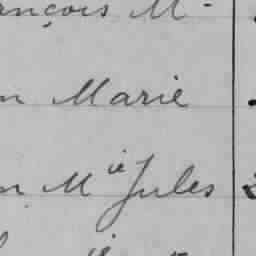 ançois M
n Marie
n Mie Jules